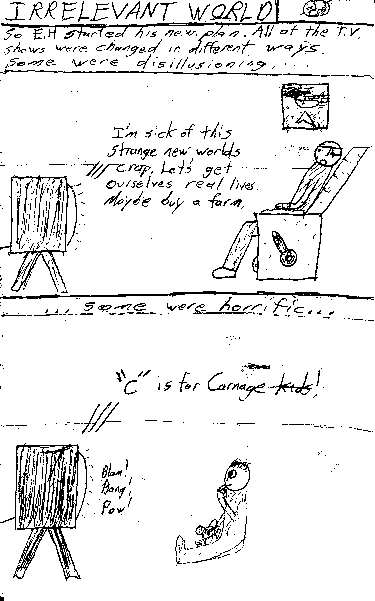 IRRELEVANT WORLD
So E.H started his new plan. All of the T.V.
shows were changed in different ways.
Some were disillusioning....
I'm sick of this
strange new worlds
crap. Let's get
ourselves real lives.
Maybe buy a farm.
...some were horrific...
"C" is for Carnage kids!
Blam!
Bang!
Pow!